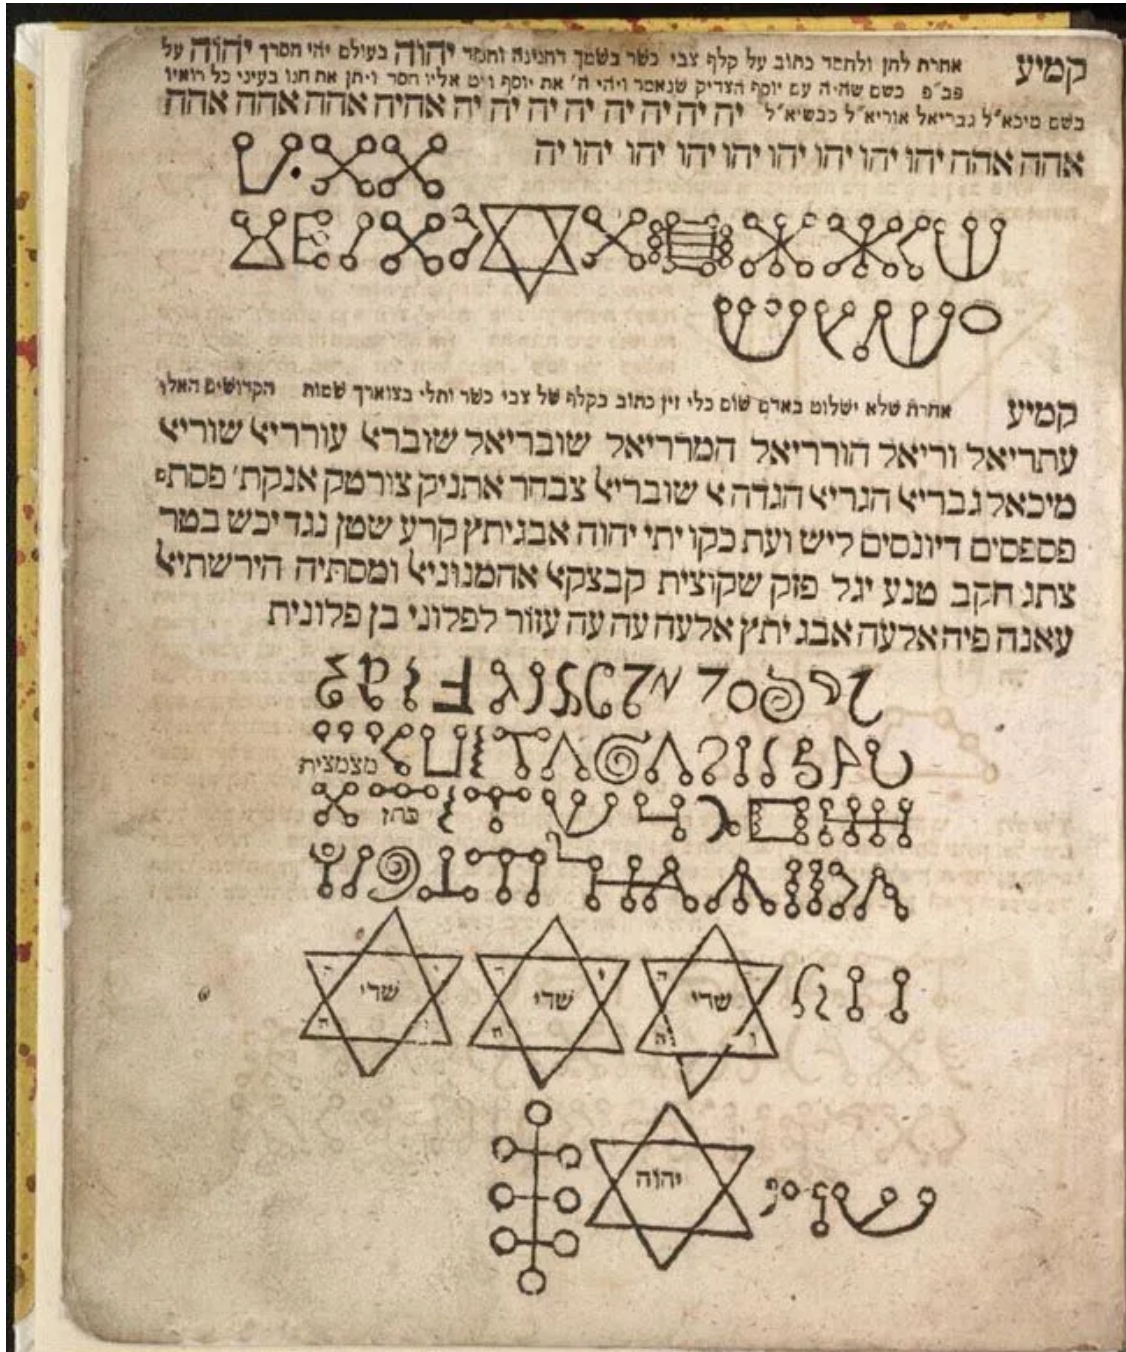 קמיע אחרת לחן ולחסד כתוב על קלף צבי כשר בשמך דחנינה וחסד יהוה בעולם יהי חסרך יהוה על
פב״פ כשם שהיה עם יוסף הצדיק שנאמר ויהי ה׳ את יוסף ויט אליו חסד ויתן את חנו בעיני כל רואיו
בשם מיכא״ל גבריאל אוריא״ל כבשיא״ל יה יה יה יה יה יה יה יה אהיה אהה אהה אהה
אהה אהה יהו יהו יהו יהו יהו יהו יהו יהו יה
קמיע אחרת שלא ישלוט באדם שום כלי זין כתוב בקלף של צבי כשר ותלי בצוארך שמות הקדושים האלו
עתריאל וריאל הורריאל המרריאל שובריאל שוברﭏ עורריﭏ שוריﭏ
מיכאל גבריﭏ הגריﭏ הגדה ﭏ שובריﭏ צבחר אתניק צורטק אנקת׳ פסתם
פספסים דיונסים ליש ועת כקו יתי יהוה אבגיתץ קרע שטן נגדיכש בטר
צתג חקב טנע יגל פזק שקוצית קבצקﭏ אהמנוניﭏ ומסתיה הירשתיﭏ
עאנה פיה אלעה אבגיתץ אלעה עה עה עזור לפלוני בן פלונית
מצמצית
כתן
שדי
ה
ו
ה
שדי
י
ה
שדי
ה
י
ה
יהוה